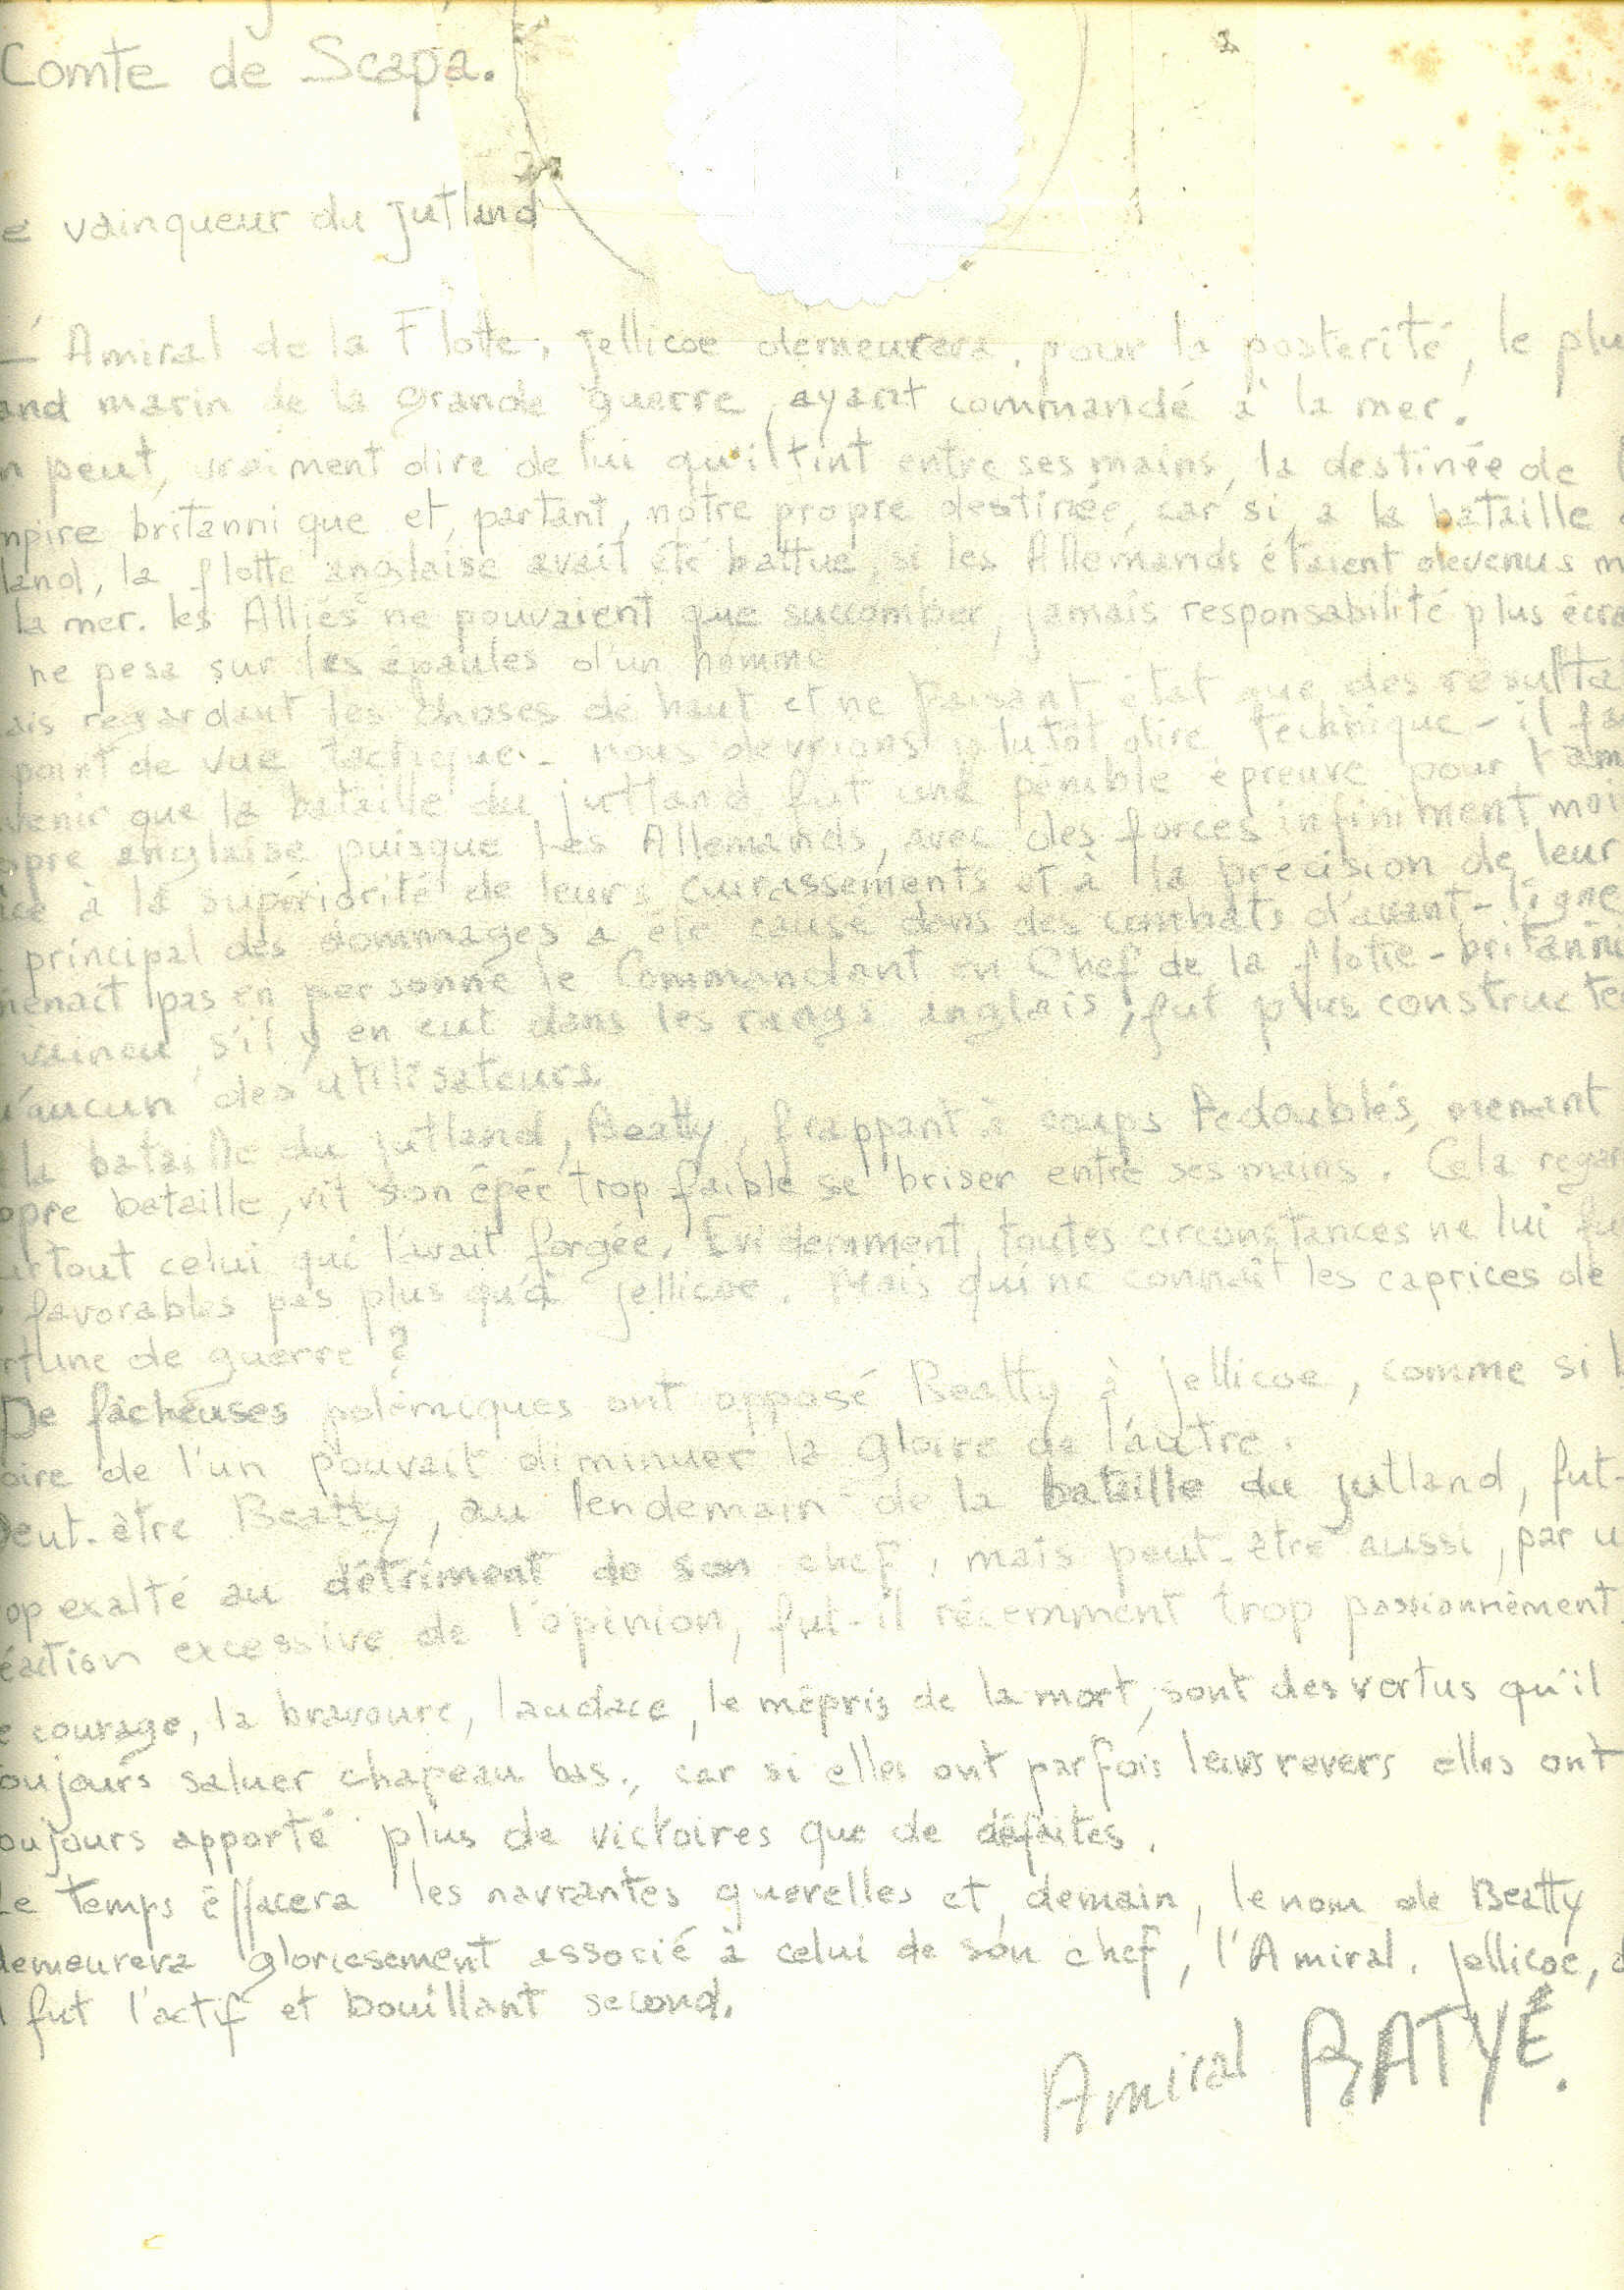 Comte de Scapa.
e vainqueur du jutland
Amiral de la Flotte, jellicoe demeurera, pour la posterité, le plu
and marin de la grande guerre, ayant commandé à la mer.
n peut, vraiment dire de lui qu'il tint entre ses mains, la destinée de
mpire britannique et, partant, notre propre destinée, car si, a la bataille
land, la flotte anglaise avait été battue, si les Allemands étaient devenus m
la mer. les Alliés ne pouvaient que succomber, jamais responsabilité plus écra
ne pesa sur les épaules d'un homme
ais regardant les choses de haut et ne faisant état que des résulta
point de vue tactique. - nous devrions plutôt dire technique - il fa
venir que la bataille du jutland fut une pénible épreuve pour l'am
opre anglaise puisque les Allemands, avec des forces infiniment moi
ce à la supériorité de leurs cuirassements et à la précision de leur
principal des dommages a été causé dans des combats d'avant-ligne
menait pas en personne le Commandant en Chef de la flotte-britanni
vaincu, s'il y en eut dans les rangs anglais, fut plus constructe
u'aucun des utilisateurs.
la bataille du jutland, Beatty, frappant à coups redoublés, menant
opre bataille, vit son épée trop faible se briser entre ses mains. Cela regar
urtout celui qui l'avait forgée. Evidemment, toutes circonstances ne lui fu
favorables pas plus qu'à jellicoe. Mais qui ne connaît les caprices de
rtune de guerre ?
De fâcheuses polémiques ont opposé Beatty à jellicoe, comme si l
oire de l'un pouvait diminuer la gloire de l'autre.
Peut-être Beatty, au lendemain de la bataille du jutland, fut-
op exalté au détriment de son chef, mais peut-être aussi, par u
éaction excessive de l'opinion, fut-il récemment trop passionnément
e courage, la bravoure, l'audace, le mépris de la mort, sont des vertus qu'il
oujours saluer chapeau bas., car si elles ont parfois leurs revers elles ont
oujours apporté plus de victoires que de défaites.
Le temps éffacera les navrantes querelles et, demain, le nom de Beatty
demeurera gloriesement associé à celui de son chef, l'Amiral. jellicoe, d
l fut l'actif et bouillant second.
Amiral RATYÉ.